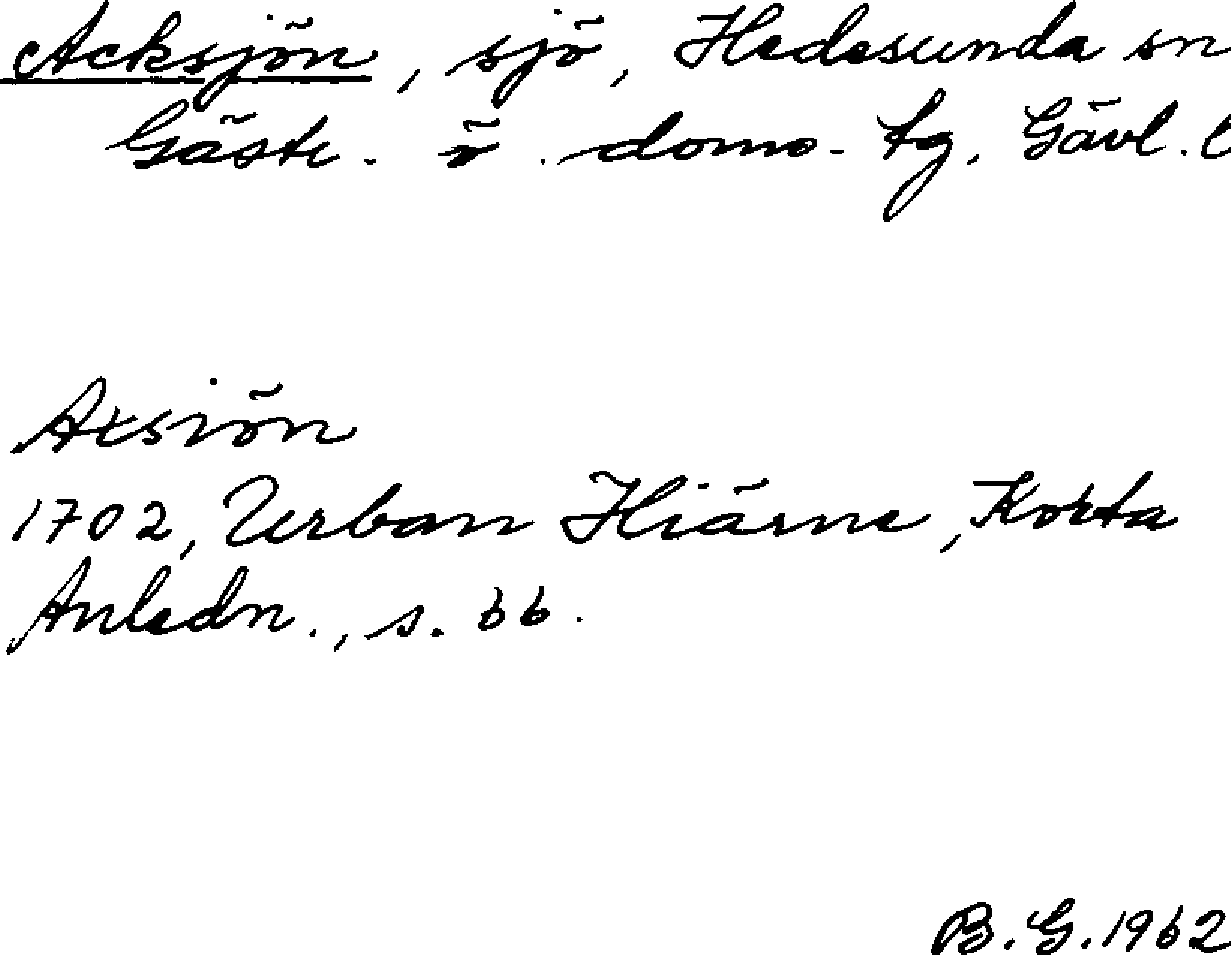 Acksjön, sjö, Hedesunda sn
Gästr. ö. doms. tg. Gävl. l
Axsiön
1702, Urban Hiärne, Korta
Anledn., s. 66.
B.G. 1962